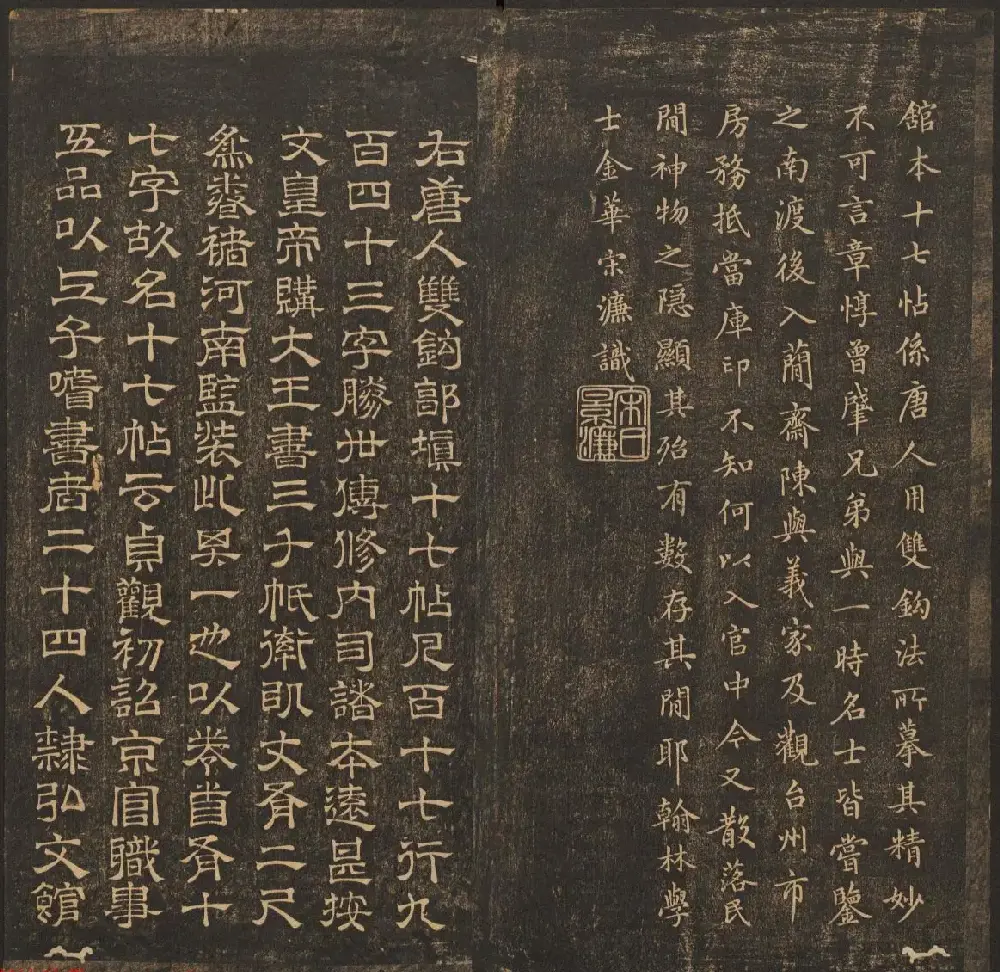 館本十七帖係唐人用雙鈎法所摹其精妙
不可言章惇曾肇兄弟與一時名士皆嘗鑒
之南渡後入簡齋陳與義家及觀台州市
房務抵當庫印不知何以入官中今又散落民
間神物之隱顯其殆有數存其間耶翰林學
士金華宋濂識
宋景濂
右唐人雙鈎郭填十七帖凡百十七行九
百四十三字勝世傳修内司諸本遠甚按
文皇帝購大王書三千帋率以丈有二尺
為卷褚河南監装此其一也以卷首有十
七字故名十七帖云貞觀初詔京官職事
五品以上子嗜書者二十四人隸弘文館